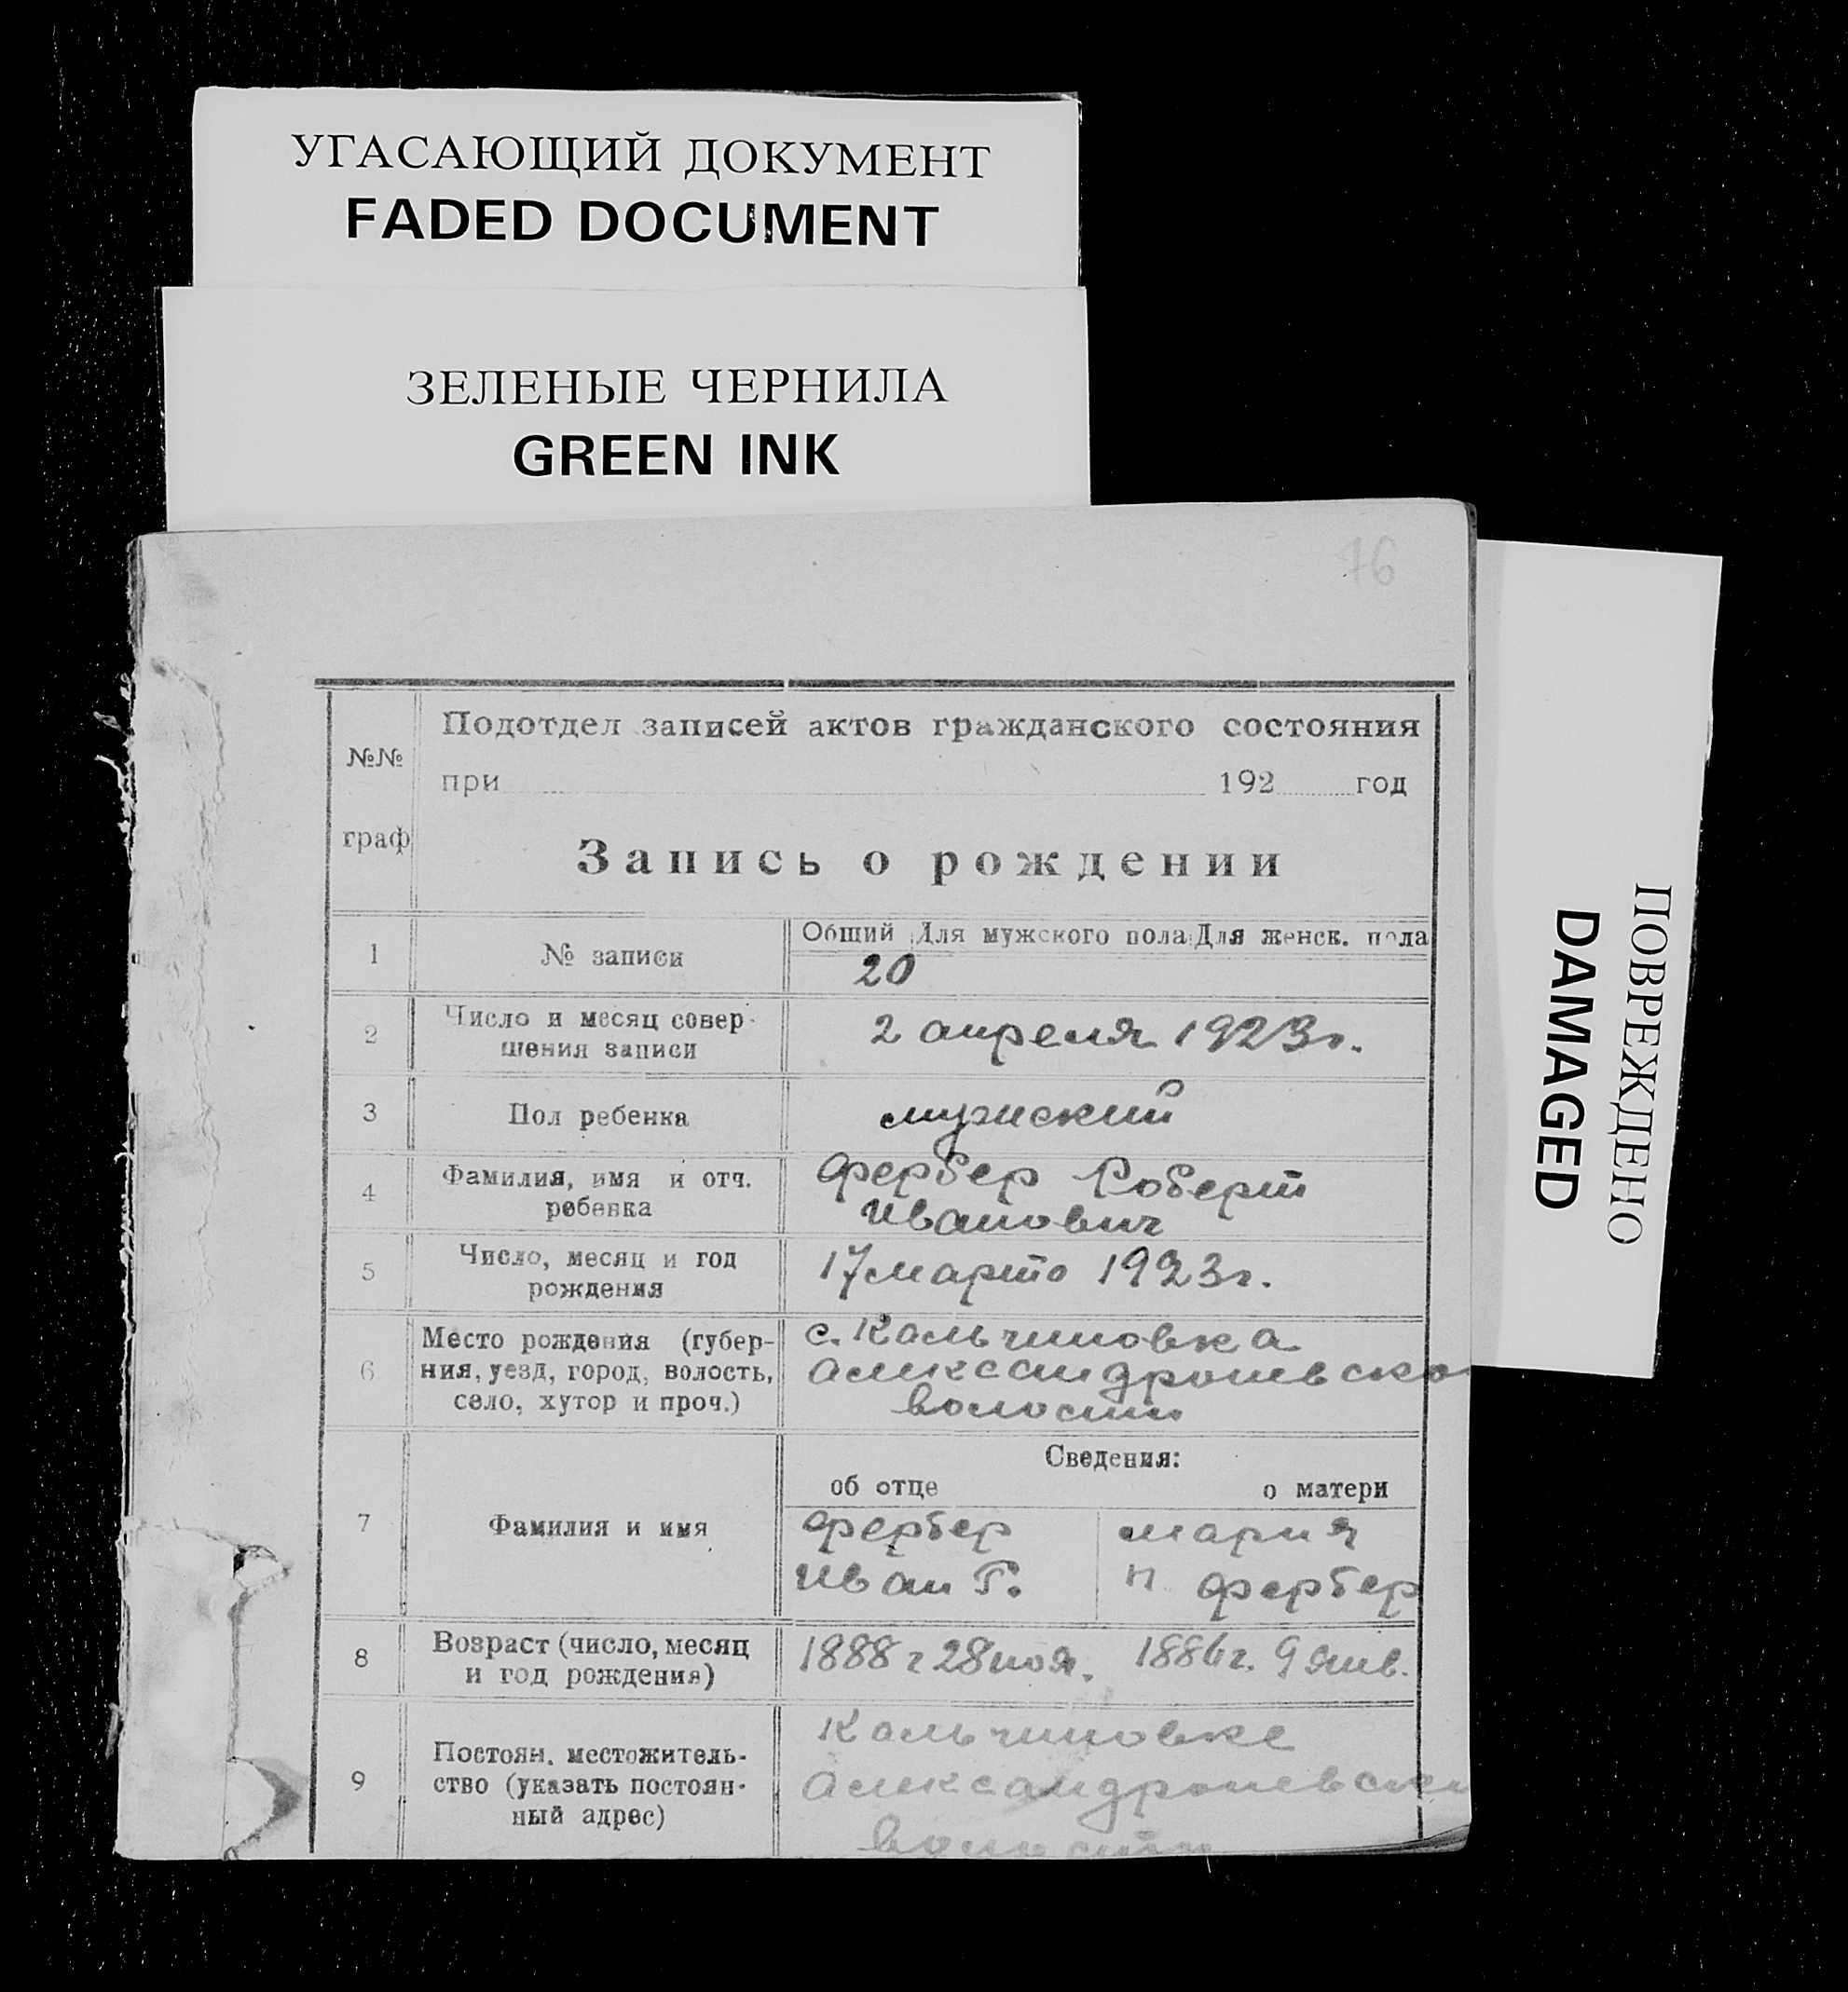 УГАСАЮЩИЙ ДОКУМЕНТ
FADED DOCUMENT
ЗЕЛЕНЫЕ ЧЕРНИЛА
GREEN INK
ПОВРЕЖДЕНО
DAMAGED
76
№№ граф
Подотдел записей актов гражданского состояния
при 192 год
Запись о рождении
Общий Для мужского пола Для женск. пола
1 № записи 20
2 Число и месяц совер-
шения записи
2 апреля 1923г.
3 Пол ребенка мужский
4 Фамилия, имя и отч.
ребенка
Фербер Роберт
Иванович
5 Число, месяц и год
рождения
17 марта 1923г.
6 Место рождения (губер-
ния, уезд, город, волость,
село, хутор и проч.)
с. Кальчиновка
Александроневско
волости
Сведения:
об отце о матери
7 Фамилия и имя
Фербер
Иван Г.
Мария
П. Фербер
8 Возраст (число, месяц
и год рождения)
1888 г 28 ноя. 1886г. 9 янв.
9 Постоян. местожитель-
ство (указать постоян-
ный адрес)
Кальчиновке
Александроневско
волости